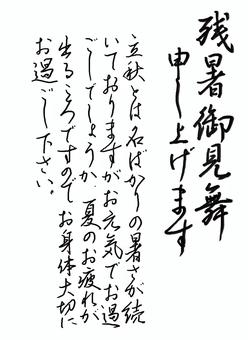 残暑御見舞
申し上げます
立秋とは名ばかりの暑さが続
いておりますがお元気でお過
ごしでしょうか。夏のお疲れが
出るころですのでお身体大切に
お過ごし下さい。